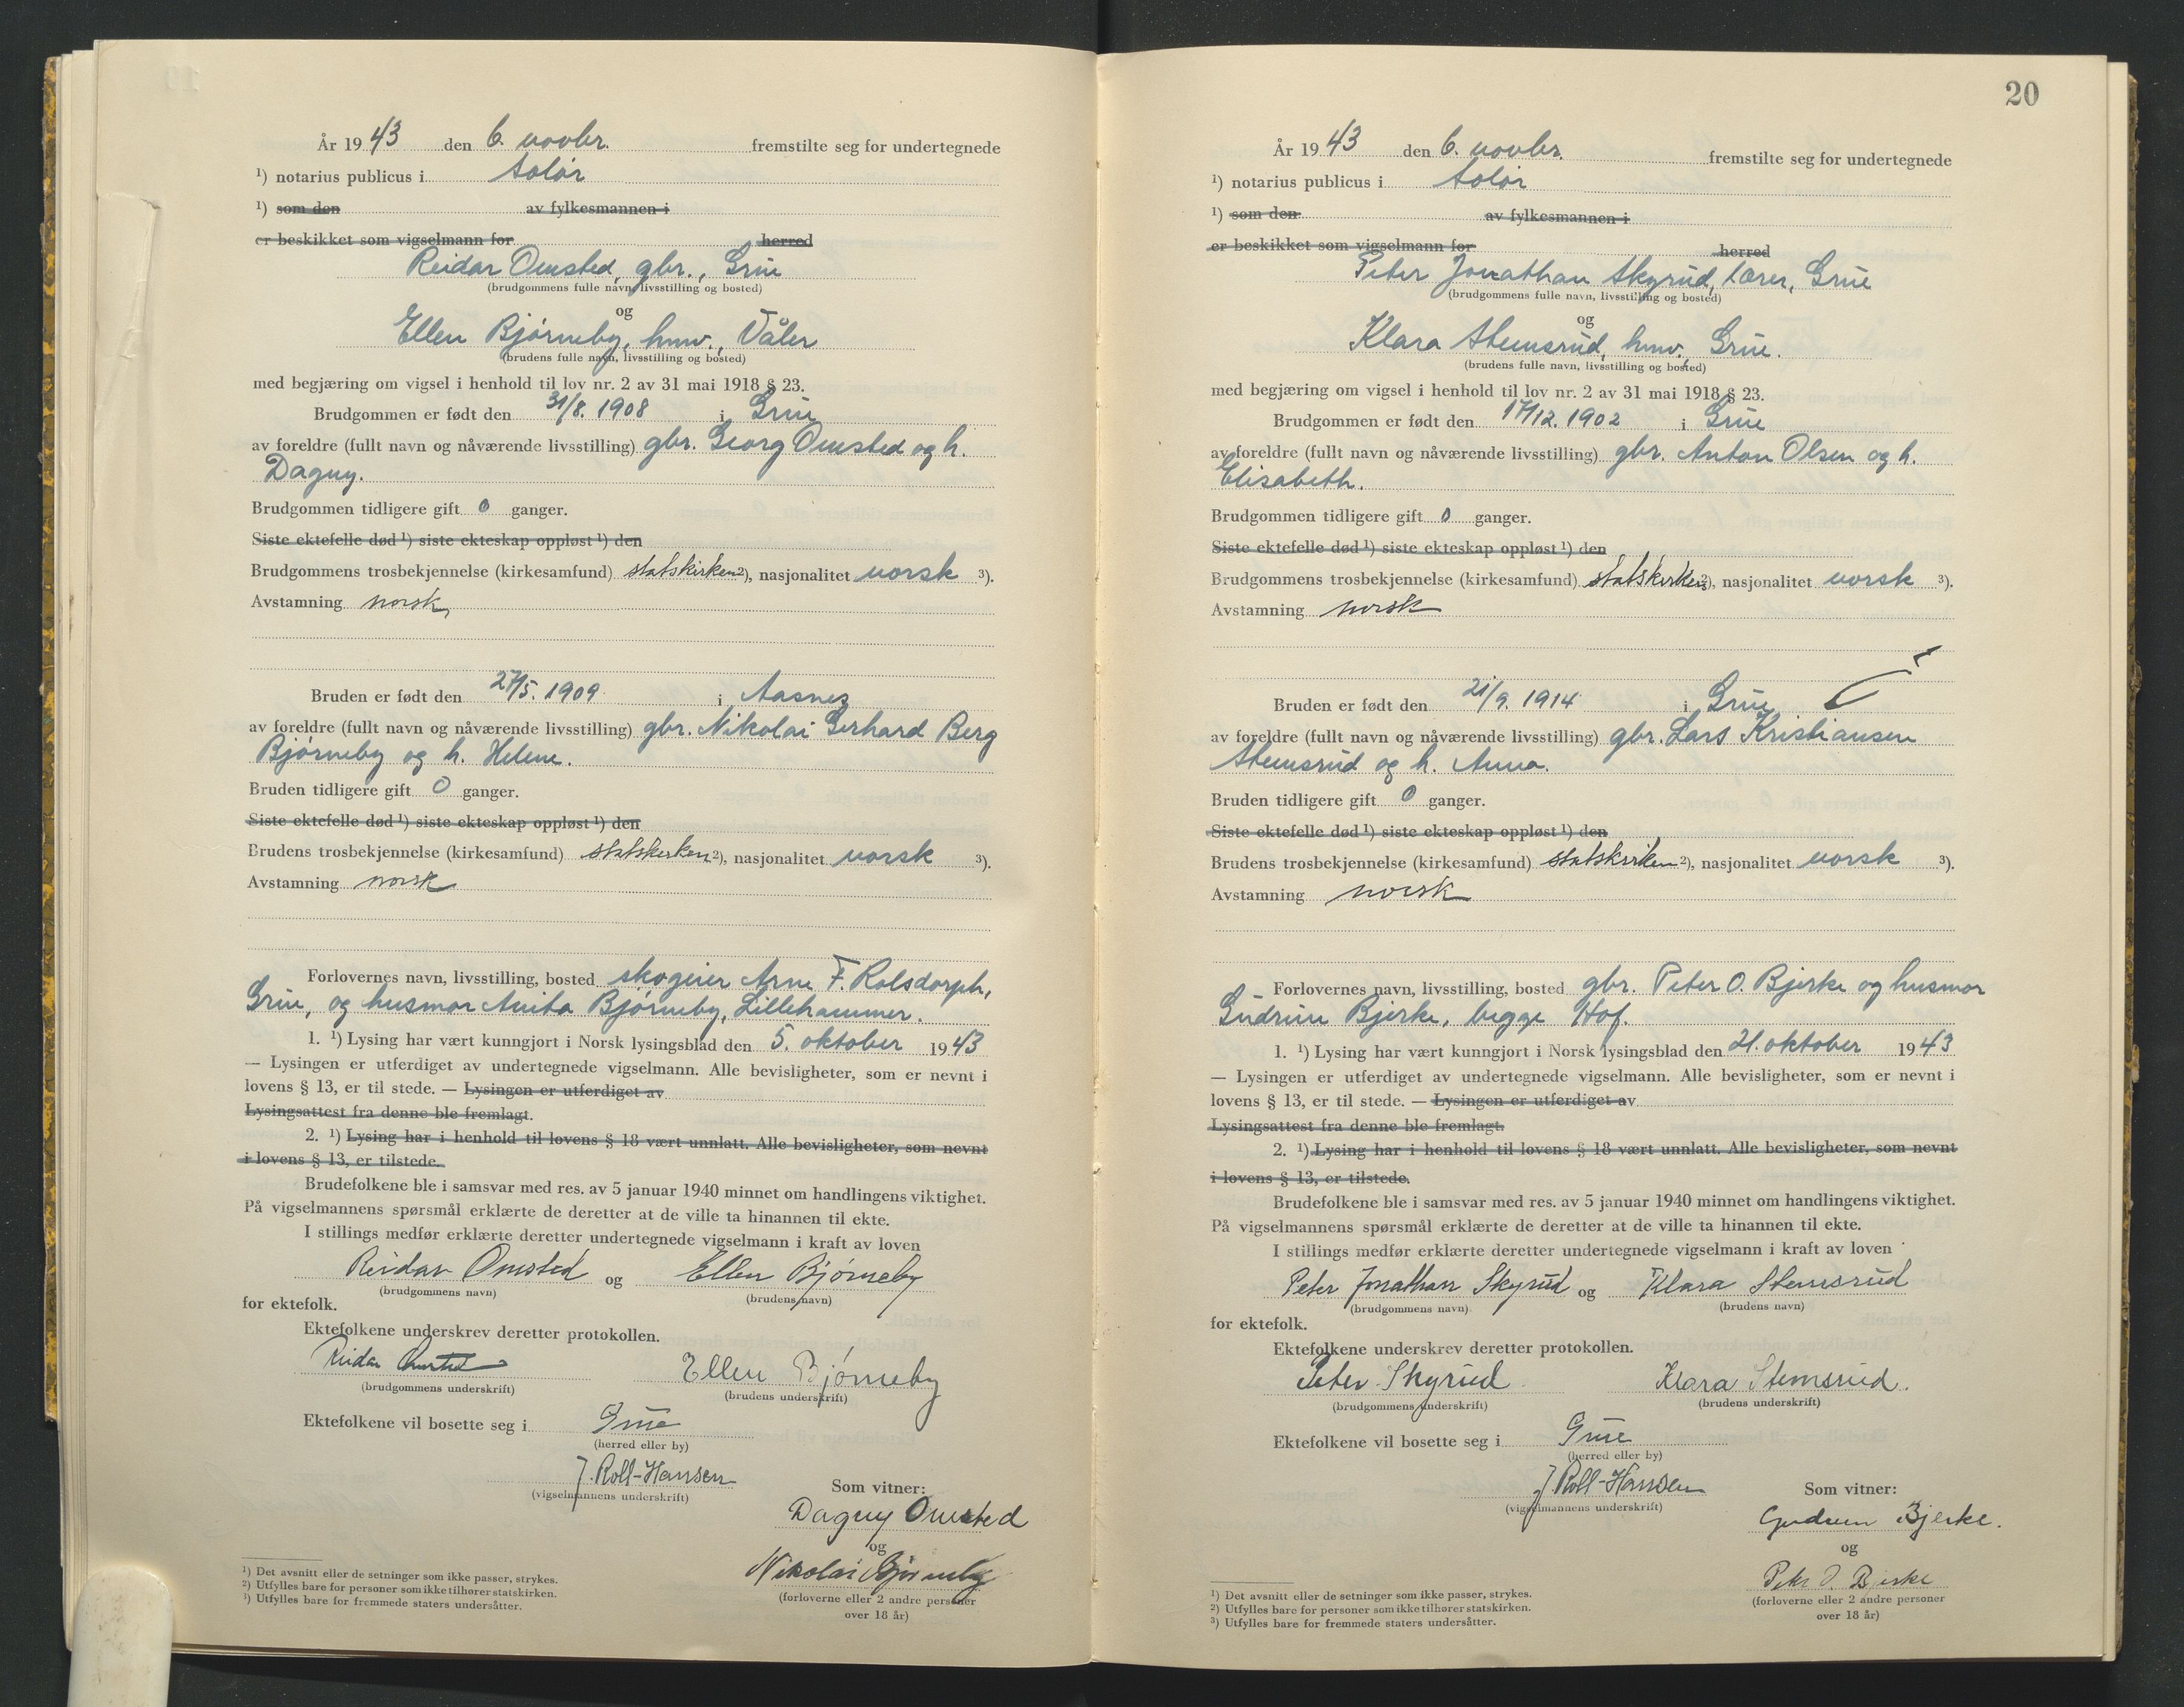 År 1943 den 6. novbr. fremstilte seg for undertegnede
¹) notarius publicus i Solør
¹) som den av fylkesmannen i
er beskikket som vigselmann for herred
Reidar Omsted, gbr., Grue
(brudgommens fulle navn, livsstilling og bosted)
og
Ellen Bjørneby, hmv., Våler
(brudens fulle navn, livsstilling og bosted)
med begjæring om vigsel i henhold til lov nr. 2 av 31 mai 1918 § 23.
Brudgommen er født den 31/8. 1908 i Grue
av foreldre (fullt navn og nåværende livsstilling) gbr. Georg Omsted og h.
Dagny.
Brudgommen tidligere gift 0 ganger.
Siste ektefelle død ¹) siste ekteskap oppløst ¹) den
Brudgommens trosbekjennelse (kirkesamfund) statskirken ²), nasjonalitet norsk ³).
Avstamning norsk
Bruden er født den 27/5. 1909 i Aasnes
av foreldre (fullt navn og nåværende livsstilling) gbr. Nikolai Gerhard Berg
Bjørneby og h. Helene.
Bruden tidligere gift 0 ganger.
Siste ektefelle død ¹) siste ekteskap oppløst ¹) den
Brudens trosbekjennelse (kirkesamfund) statskirken ²), nasjonalitet norsk ³).
Avstamning norsk
Forlovernes navn, livsstilling, bosted skogeier Arne F. Rolsdorph,
Grue, og husmor Anita Bjørneby, Lillehammer.
1. ¹) Lysing har vært kunngjort i Norsk lysingsblad den 5. oktober 1943
— Lysingen er utferdiget av undertegnede vigselmann. Alle bevisligheter, som er nevnt i
lovens § 13, er til stede. — Lysingen er utferdiget av
Lysingsattest fra denne ble fremlagt.
2. ¹) Lysing har i henhold til lovens § 18 vært unnlatt. Alle bevisligheter, som nevnt
i lovens § 13, er tilstede.
Brudefolkene ble i samsvar med res. av 5 januar 1940 minnet om handlingens viktighet.
På vigselmannens spørsmål erklærte de deretter at de ville ta hinannen til ekte.
I stillings medfør erklærte deretter undertegnede vigselmann i kraft av loven
Reidar Omsted og Ellen Bjørneby
(brudgommens navn) (brudens navn)
for ektefolk.
Ektefolkene underskrev deretter protokollen.
Reidar Omsted Ellen Bjørneby
(brudgommens underskrift) (brudens underskrift)
Ektefolkene vil bosette seg i Grue
(herred eller by)
J. Roll-Hansen
(vigselmannens underskrift)
Som vitner:
Dagny Omsted
og
Nikolai Bjørneby
(forloverne eller 2 andre personer
over 18 år)
¹) Det avsnitt eller de setninger som ikke passer, strykes.
²) Utfylles bare for personer som ikke tilhører statskirken.
³) Utfylles bare for fremmede staters undersåtter.
20
År 1943 den 6. novbr. fremstilte seg for undertegnede
¹) notarius publicus i Solør
¹) som den av fylkesmannen i
er beskikket som vigselmann for herred
Peter Jonathan Skyrud, lærer, Grue
(brudgommens fulle navn, livsstilling og bosted)
og
Klara Stemsrud, hmv., Grue.
(brudens fulle navn, livsstilling og bosted)
med begjæring om vigsel i henhold til lov nr. 2 av 31 mai 1918 § 23.
Brudgommen er født den 17/12. 1902 i Grue
av foreldre (fullt navn og nåværende livsstilling) gbr. Anton Olsen og h.
Elisabeth.
Brudgommen tidligere gift 0 ganger.
Siste ektefelle død ¹) siste ekteskap oppløst ¹) den
Brudgommens trosbekjennelse (kirkesamfund) statskirken ²), nasjonalitet norsk ³).
Avstamning norsk
Bruden er født den 21/9. 1914 i Grue
av foreldre (fullt navn og nåværende livsstilling) gbr. Lars Kristiansen
Stemsrud og h. Anna.
Bruden tidligere gift 0 ganger.
Siste ektefelle død ¹) siste ekteskap oppløst ¹) den
Brudens trosbekjennelse (kirkesamfund) statskirken ²), nasjonalitet norsk ³).
Avstamning norsk
Forlovernes navn, livsstilling, bosted gbr. Peter O. Bjerke og husmor
Gudrun Bjerke, begge Hof.
1. ¹) Lysing har vært kunngjort i Norsk lysingsblad den 21. oktober 1943
— Lysingen er utferdiget av undertegnede vigselmann. Alle bevisligheter, som er nevnt i
lovens § 13, er til stede. — Lysingen er utferdiget av
Lysingsattest fra denne ble fremlagt.
2. ¹) Lysing har i henhold til lovens § 18 vært unnlatt. Alle bevisligheter, som nevnt
i lovens § 13, er tilstede.
Brudefolkene ble i samsvar med res. av 5 januar 1940 minnet om handlingens viktighet.
På vigselmannens spørsmål erklærte de deretter at de ville ta hinannen til ekte.
I stillings medfør erklærte deretter undertegnede vigselmann i kraft av loven
Peter Jonathan Skyrud og Klara Stemsrud
(brudgommens navn) (brudens navn)
for ektefolk.
Ektefolkene underskrev deretter protokollen.
Peter Skyrud Klara Stemsrud.
(brudgommens underskrift) (brudens underskrift)
Ektefolkene vil bosette seg i Grue
(herred eller by)
J Roll-Hansen
(vigselmannens underskrift)
Som vitner:
Gudrun Bjerke.
og
Peter O. Bjerke
(forloverne eller 2 andre personer
over 18 år)
¹) Det avsnitt eller de setninger som ikke passer, strykes.
²) Utfylles bare for personer som ikke tilhører statskirken.
³) Utfylles bare for fremmede staters undersåtter.